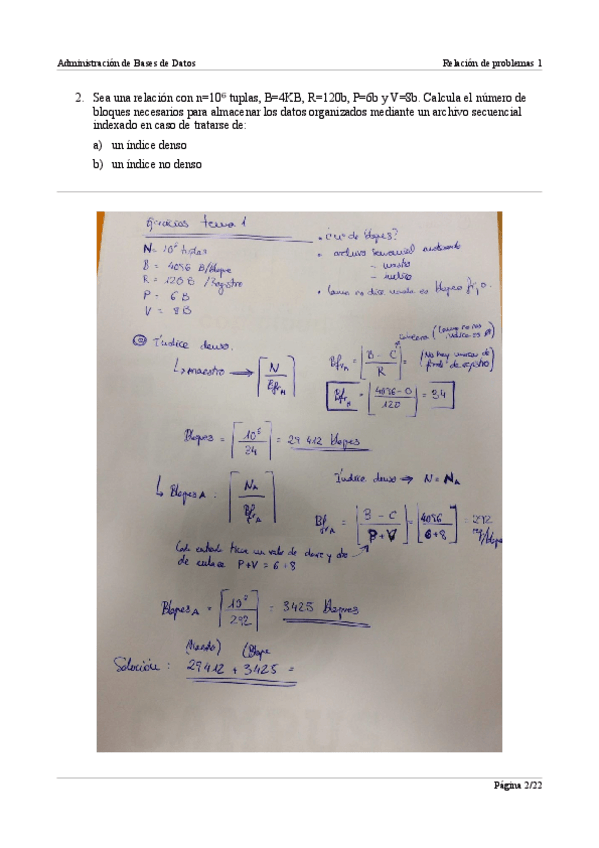 Administración de Bases de Datos
Relación de problemas 1
2. Sea una relación con n=10⁶ tuplas, B=4KB, R=120b, P=6b y V=8b. Calcula el número de
bloques necesarios para almacenar los datos organizados mediante un archivo secuencial
indexado en caso de tratarse de:
a) un índice denso
b) un índice no denso
Ejercicios tema 1
N = 10⁶ tuplas
B = 4096 B/bloque
R = 120 B /Registro
P = 6B
V = 8B
• ¿nº de bloques?
• archivo secuencial
- maestro
- índice
• Como no dice nada es bloqueo fijo.
a) Índice denso.
↳ maestro → ⌈N / Bfr_M⌉
cabecera (como no nos indica es 0)
Bfr_M = ⌊B - C / R⌋ = (No hay marcas de final de registro)
Bfr_M = ⌊4096-0 / 120⌋ = 34
Bloques = ⌈10⁶ / 34⌉ = 29 412 bloques
Índice denso → N = N_A
↳ Bloques A : ⌈N_A / Bfr_A⌉
Bfr_A = ⌊B - C / P+V⌋ = ⌊4096 / 6+8⌋ = 292 reg/bloque
Cada entrada tiene un valor de clave y de
de enlace P+V = 6+8
Bloques A = ⌈10⁶ / 292⌉ = 3425 bloques
(Maestro) (Bloque
Solución : 29412 + 3425 =
Página 2/22